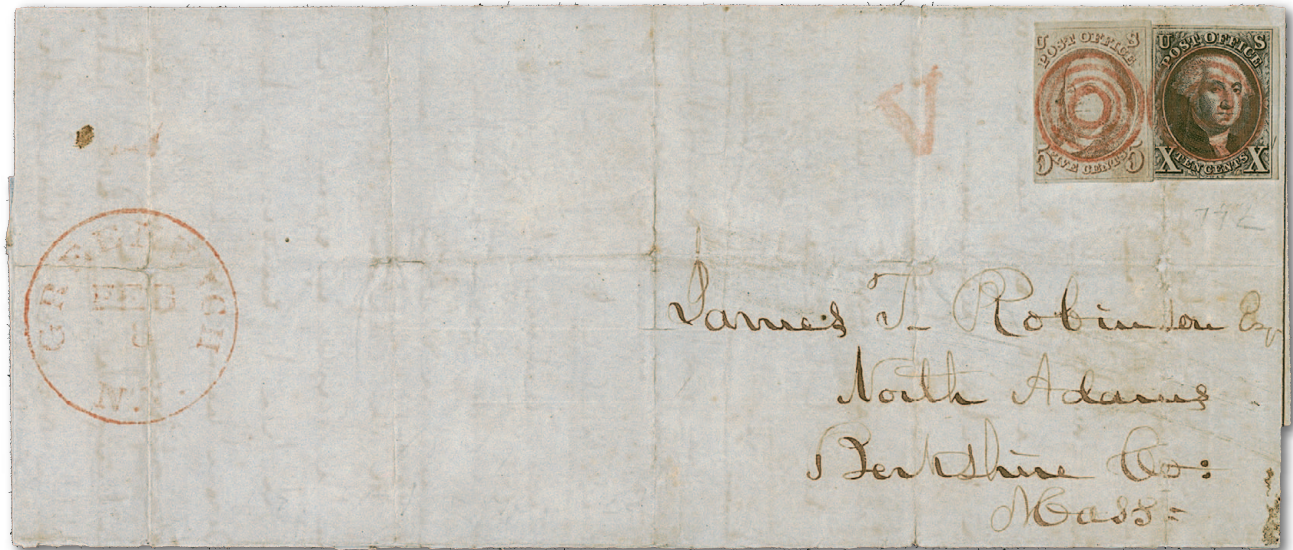 U S
POST OFFICE
5 FIVE CENTS 5
U S
POST OFFICE
X TEN CENTS X
V
GREENWICH
FEB
8
N.Y.
James T. Robinson Esq
North Adams
Berkshire Co:
Mass